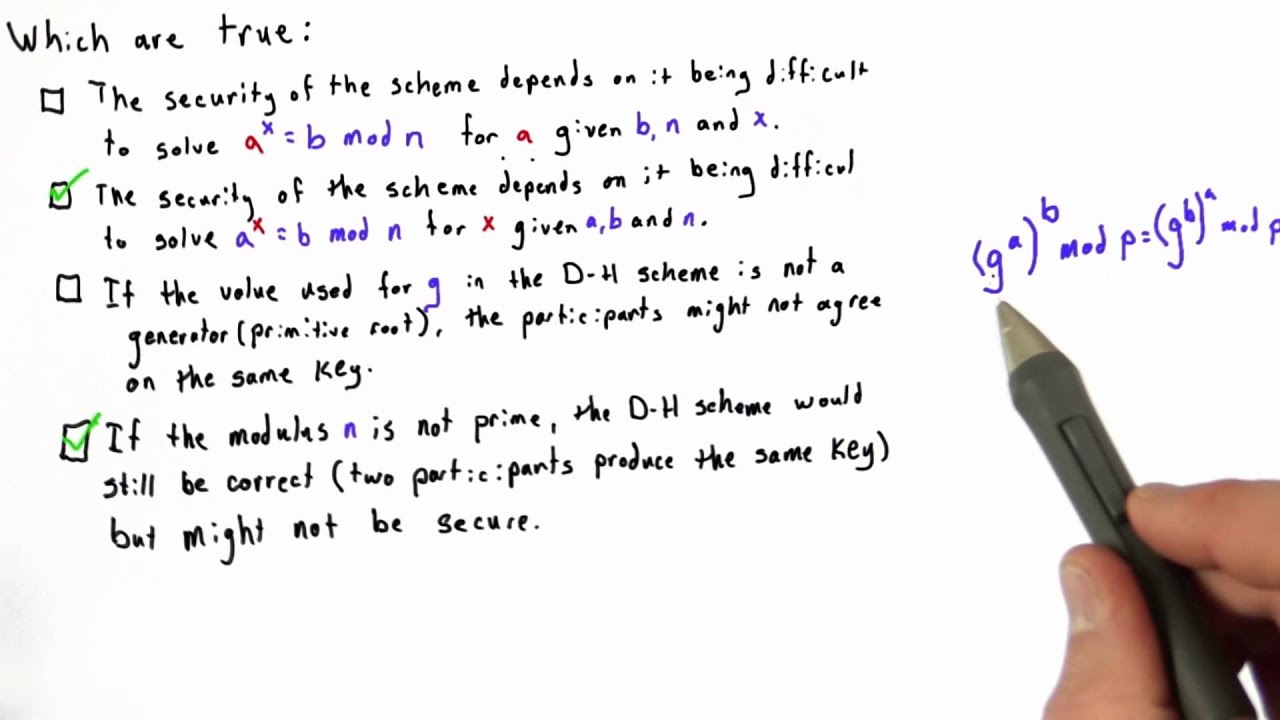 Which are true:
The security of the scheme depends on it being difficult
to solve aˣ = b mod n for a given b, n and x.
The security of the scheme depends on it being difficul
to solve aˣ = b mod n for x given a, b and n.
If the value used for g in the D-H scheme is not a
generator (primitive root), the participants might not agree
on the same key.
If the modulus n is not prime, the D-H scheme would
still be correct (two participants produce the same key)
but might not be secure.
(gᵃ)ᵇ mod p = (gᵇ)ᵃ mod p